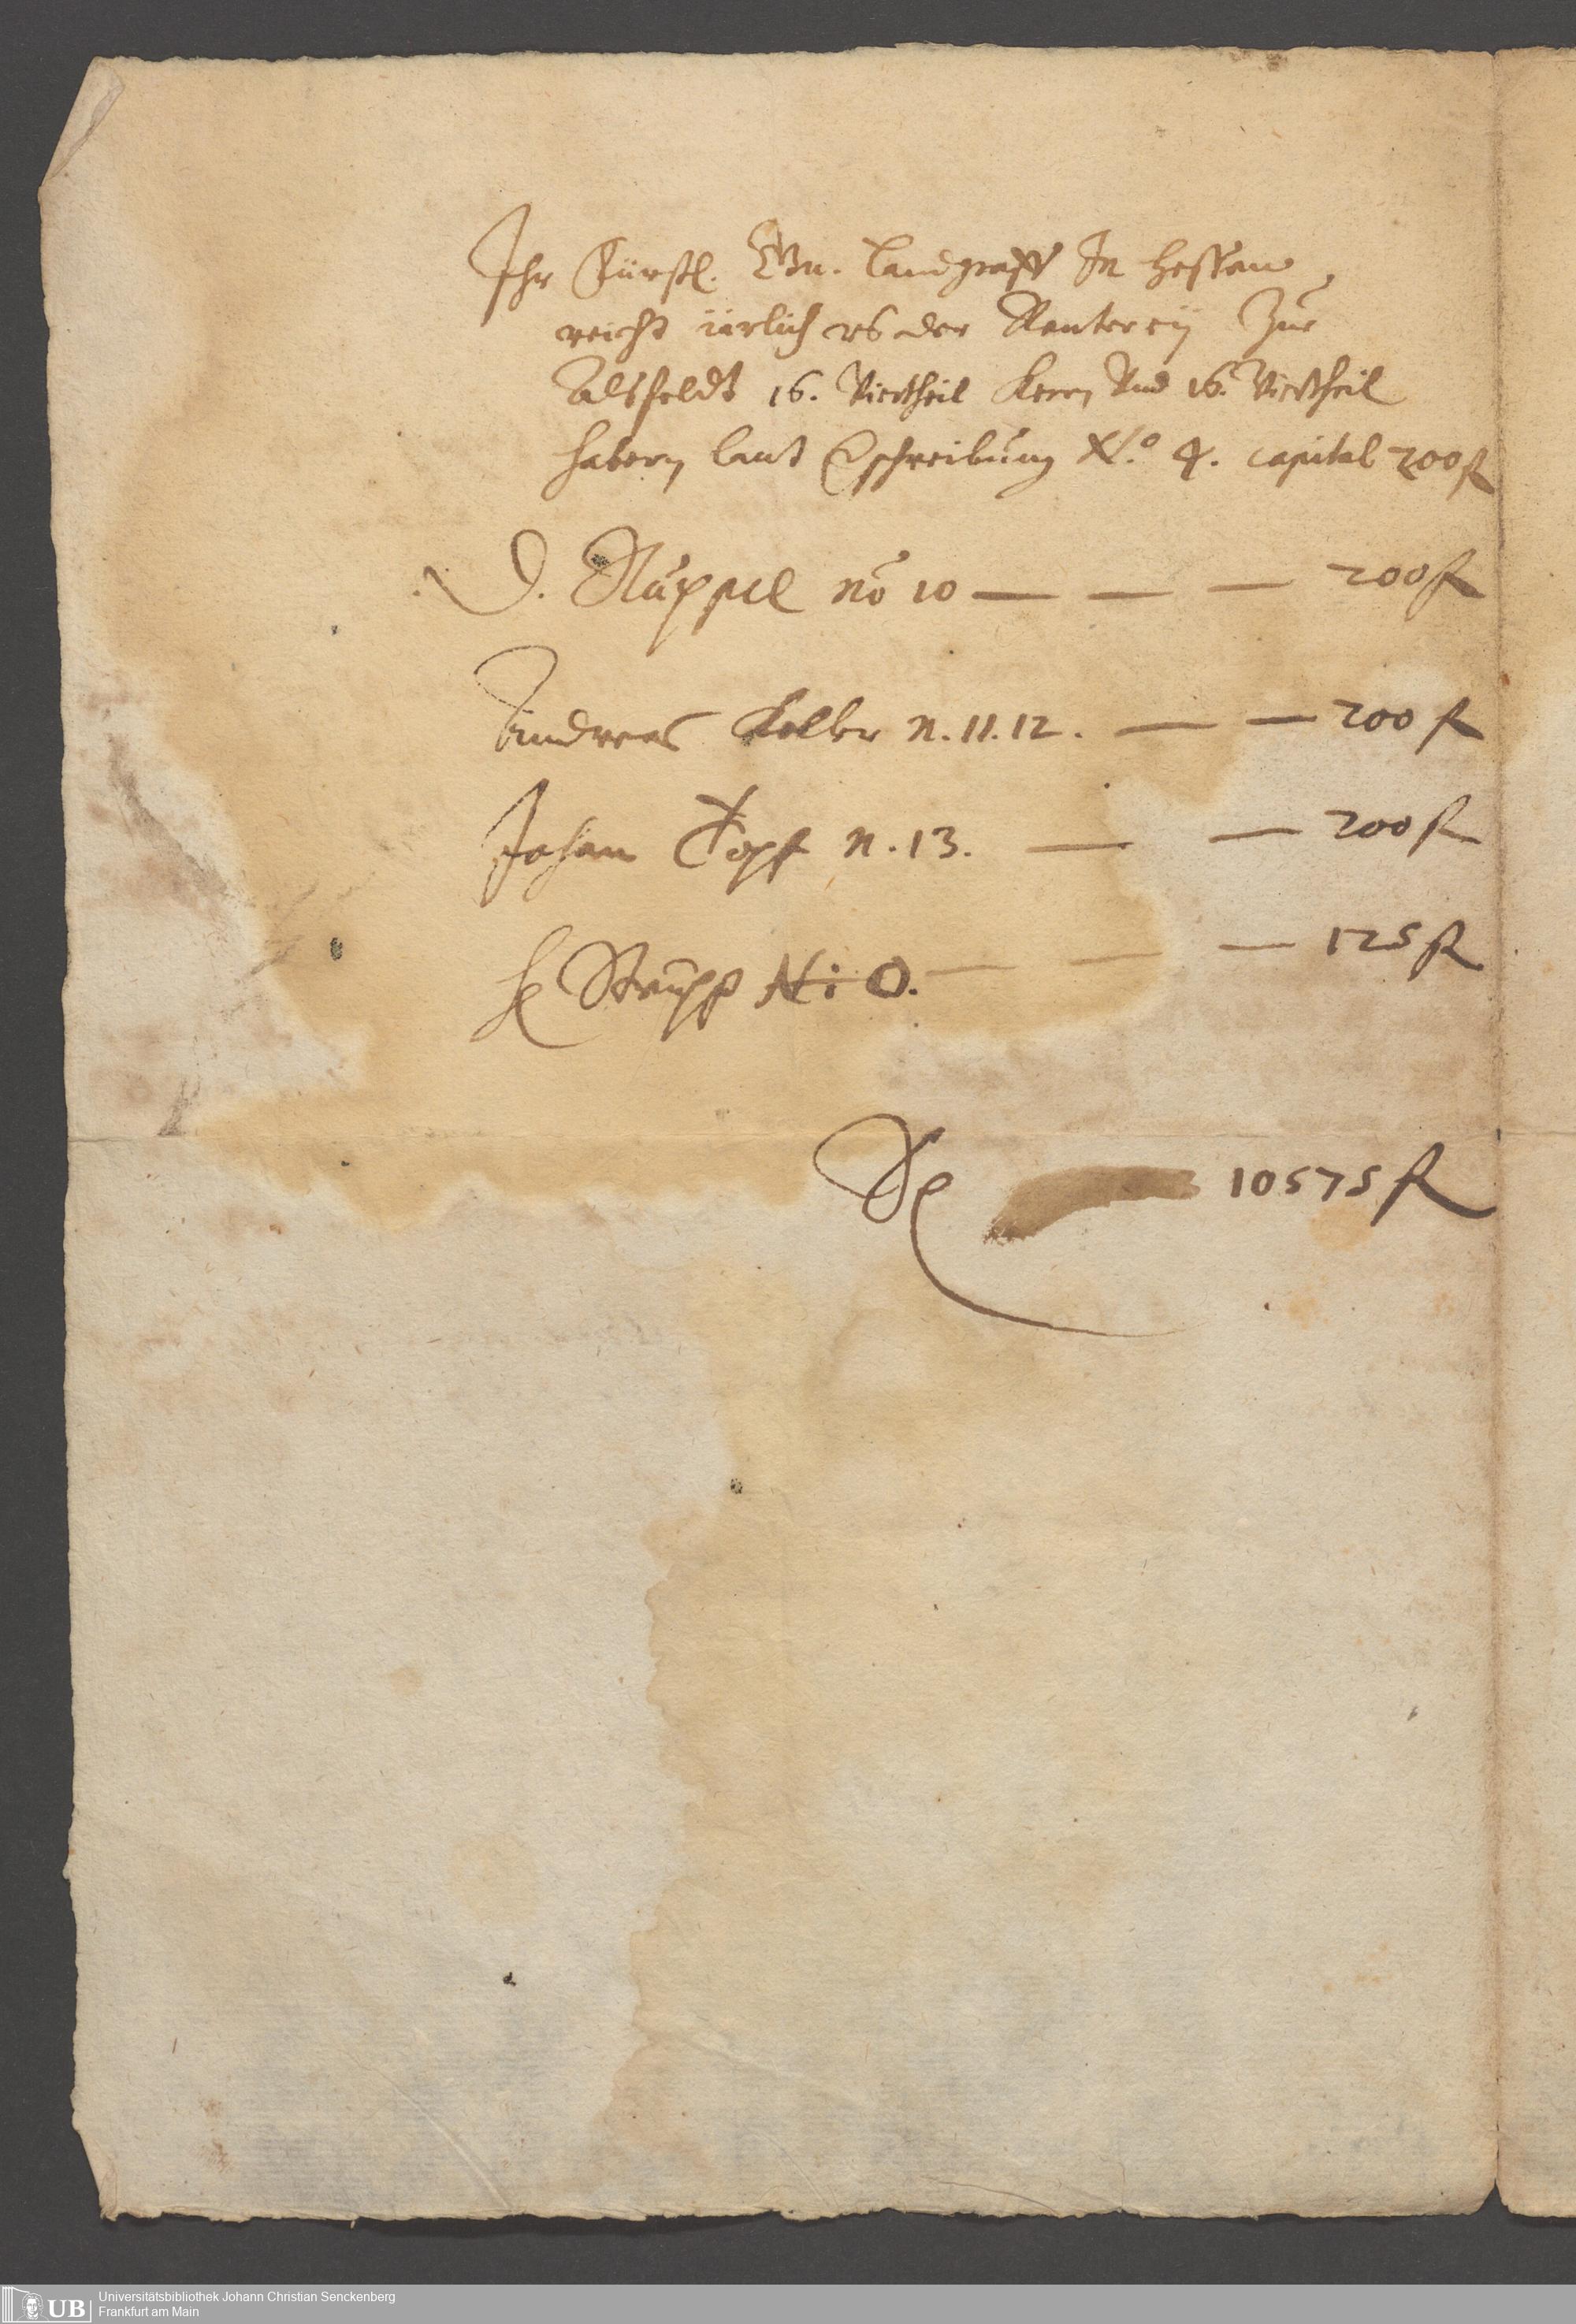 Ihr Fürstl. Gn. Landgraff In Hessen
reicht järlich vs der Renterey Zue
Alsfeldt 16. Viertheil Korn Vnd 16. Viertheil
habern laut Vschreibung N.º 4. capital 200 fl
D. Ruppel nō 10 — — — 200 fl
Andreas Koller n. 11. 12. — — 200 fl
Johan Topf n. 13. — — 200 fl
H Strupp N: O. — — — 125 fl
Sa 10575 fl
UB Universitätsbibliothek Johann Christian Senckenberg
Frankfurt am Main